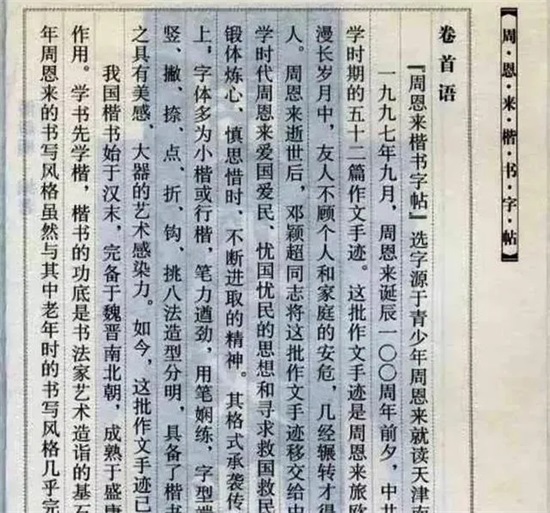 【周·恩·来·楷·书·字·帖】
卷首语
『周恩来楷书字帖』选字源于青少年周恩来就读天津南
一九九七年九月，周恩来诞辰一〇〇周年前夕，中共
学时期的五十二篇作文手迹。这批作文手迹是周恩来旅欧
漫长岁月中，友人不顾个人和家庭的安危，几经辗转才得
人。周恩来逝世后，邓颖超同志将这批作文手迹移交给中
学时代周恩来爱国爱民、忧国忧民的思想和寻求救国救民
锻体炼心、慎思惜时、不断进取的精神。其格式承袭传
上，字体多为小楷或行楷，笔力遒劲，用笔娴练，字型端
竖、撇、捺、点、折、钩、挑八法造型分明，具备了楷书
之具有美感、大器的艺术感染力。如今，这批作文手迹已
我国楷书始于汉末，完备于魏晋南北朝，成熟于盛唐
作用。学书先学楷，楷书的功底是书法家艺术造诣的基石
年周恩来的书写风格虽然与其中老年时的书写风格几乎完